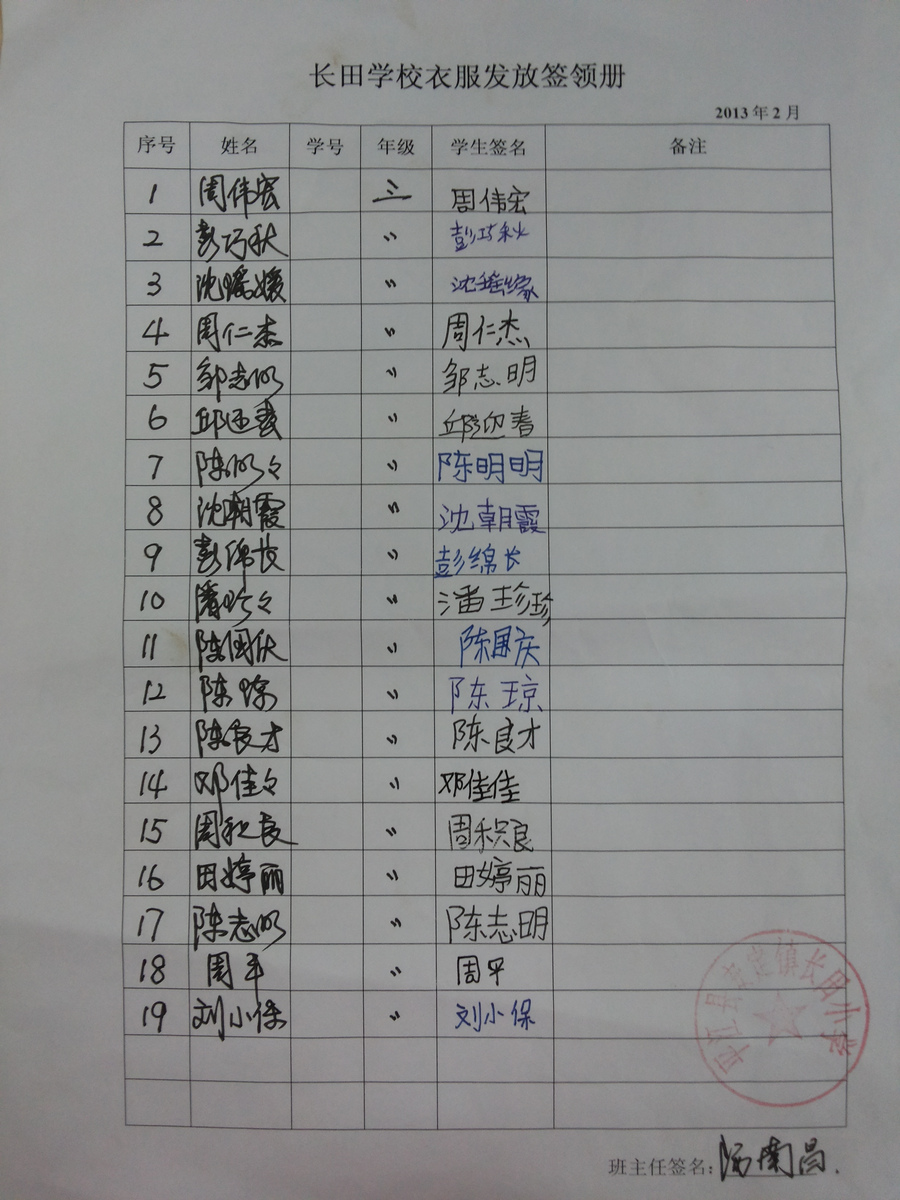 长田学校衣服发放签领册
2013年2月
序号 姓名 学号 年级 学生签名 备注
1 周伟宏 三 周伟宏
2 彭巧秋 〃 彭巧秋
3 沈瑶媛 〃 沈瑶缘
4 周仁杰 〃 周仁杰
5 邹志明 〃 邹志明
6 邱迎春 〃 邱迎春
7 陈明々 〃 陈明明
8 沈朝霞 〃 沈朝霞
9 彭绵长 〃 彭绵长
10 潘珍々 〃 潘珍珍
11 陈国庆 〃 陈国庆
12 陈琼 〃 陈琼
13 陈良才 〃 陈良才
14 邓佳々 〃 邓佳佳
15 周积良 〃 周积良
16 田婷丽 〃 田婷丽
17 陈志明 〃 陈志明
18 周平 〃 周平
19 刘小保 〃 刘小保
平江县 镇长田小学
班主任签名: 南昌.